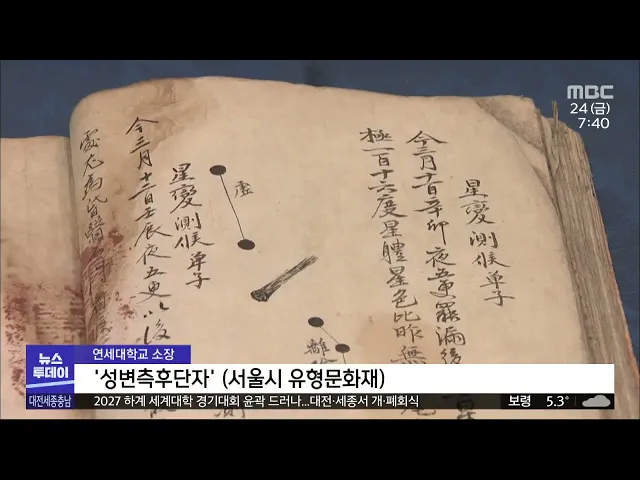 MBC
24(금)
7:40
星變測候单子
今三月十一日辛卯夜五更罷漏後
極一百十六度星體星色比昨無
虛
星變測候单子
今三月十二日壬辰夜五更以後
뉴스
투데이
연세대학교 소장
'성변측후단자' (서울시 유형문화재)
대전세종충남
2027 하계 세계대학 경기대회 윤곽 드러나...대전·세종서 개·폐회식
보령 5.3°